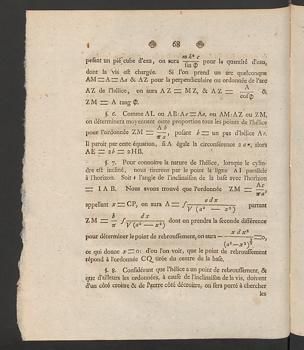 68
pesant un pié cube d'eau, on aura m h² c / sin Φ pour la quantité d'eau,
dont la vis est chargée. Si l'on prend un arc quelconque
AM = A = A a & AZ pour la perpendiculaire ou ordonnée de l'arc
AZ de l'hélice, on aura AZ = MZ, & AZ = A / cos Φ &
ZM = A tang Φ.
§. 6. Comme AL ou AB: A a = A a, ou AM: AZ ou ZM,
on déterminera moyennant cette proportion tous les points de l'hélice
pour l'ordonnée ZM = A b / π a, posant b = un pas d'hélice
Il paroit par cette équation, si A égale la circonférence 2 a π, alors
AE = 2b = 2HB.
§. 7. Pour connoître la nature de l'hélice, lorsque le cylin-
dre est incliné, nous tirerons par le point la ligne A I parallele
à l'horizon. Soit l'angle de l'inclinaison de la base avec l'horizon
= IAB. Nous avons trouvé que l'ordonnée ZM = A c / π a,
appellant x = CP, on aura A = ∫ a d x / V (a² — x²) partant
ZM = b / π ∫ d x / V (a² — x²) dont on prendra la seconde différence
pour déterminer le point de rebroussement, on aura — x d x² / (a² — x²) = 0,
ce qui donne x = 0: d'ou l'on voit, que le point de rebroussement
répond à l'ordonnée CQ tirée du centre de la base.
§. 8. Considérant que l'hélice a un point de rebroussement, &
que d'ailleurs les ordonnées, à cause de l'inclinaison de la vis, doivent
d'un côté croître & de l'autre côté décroitre, on sera porté à chercher
les